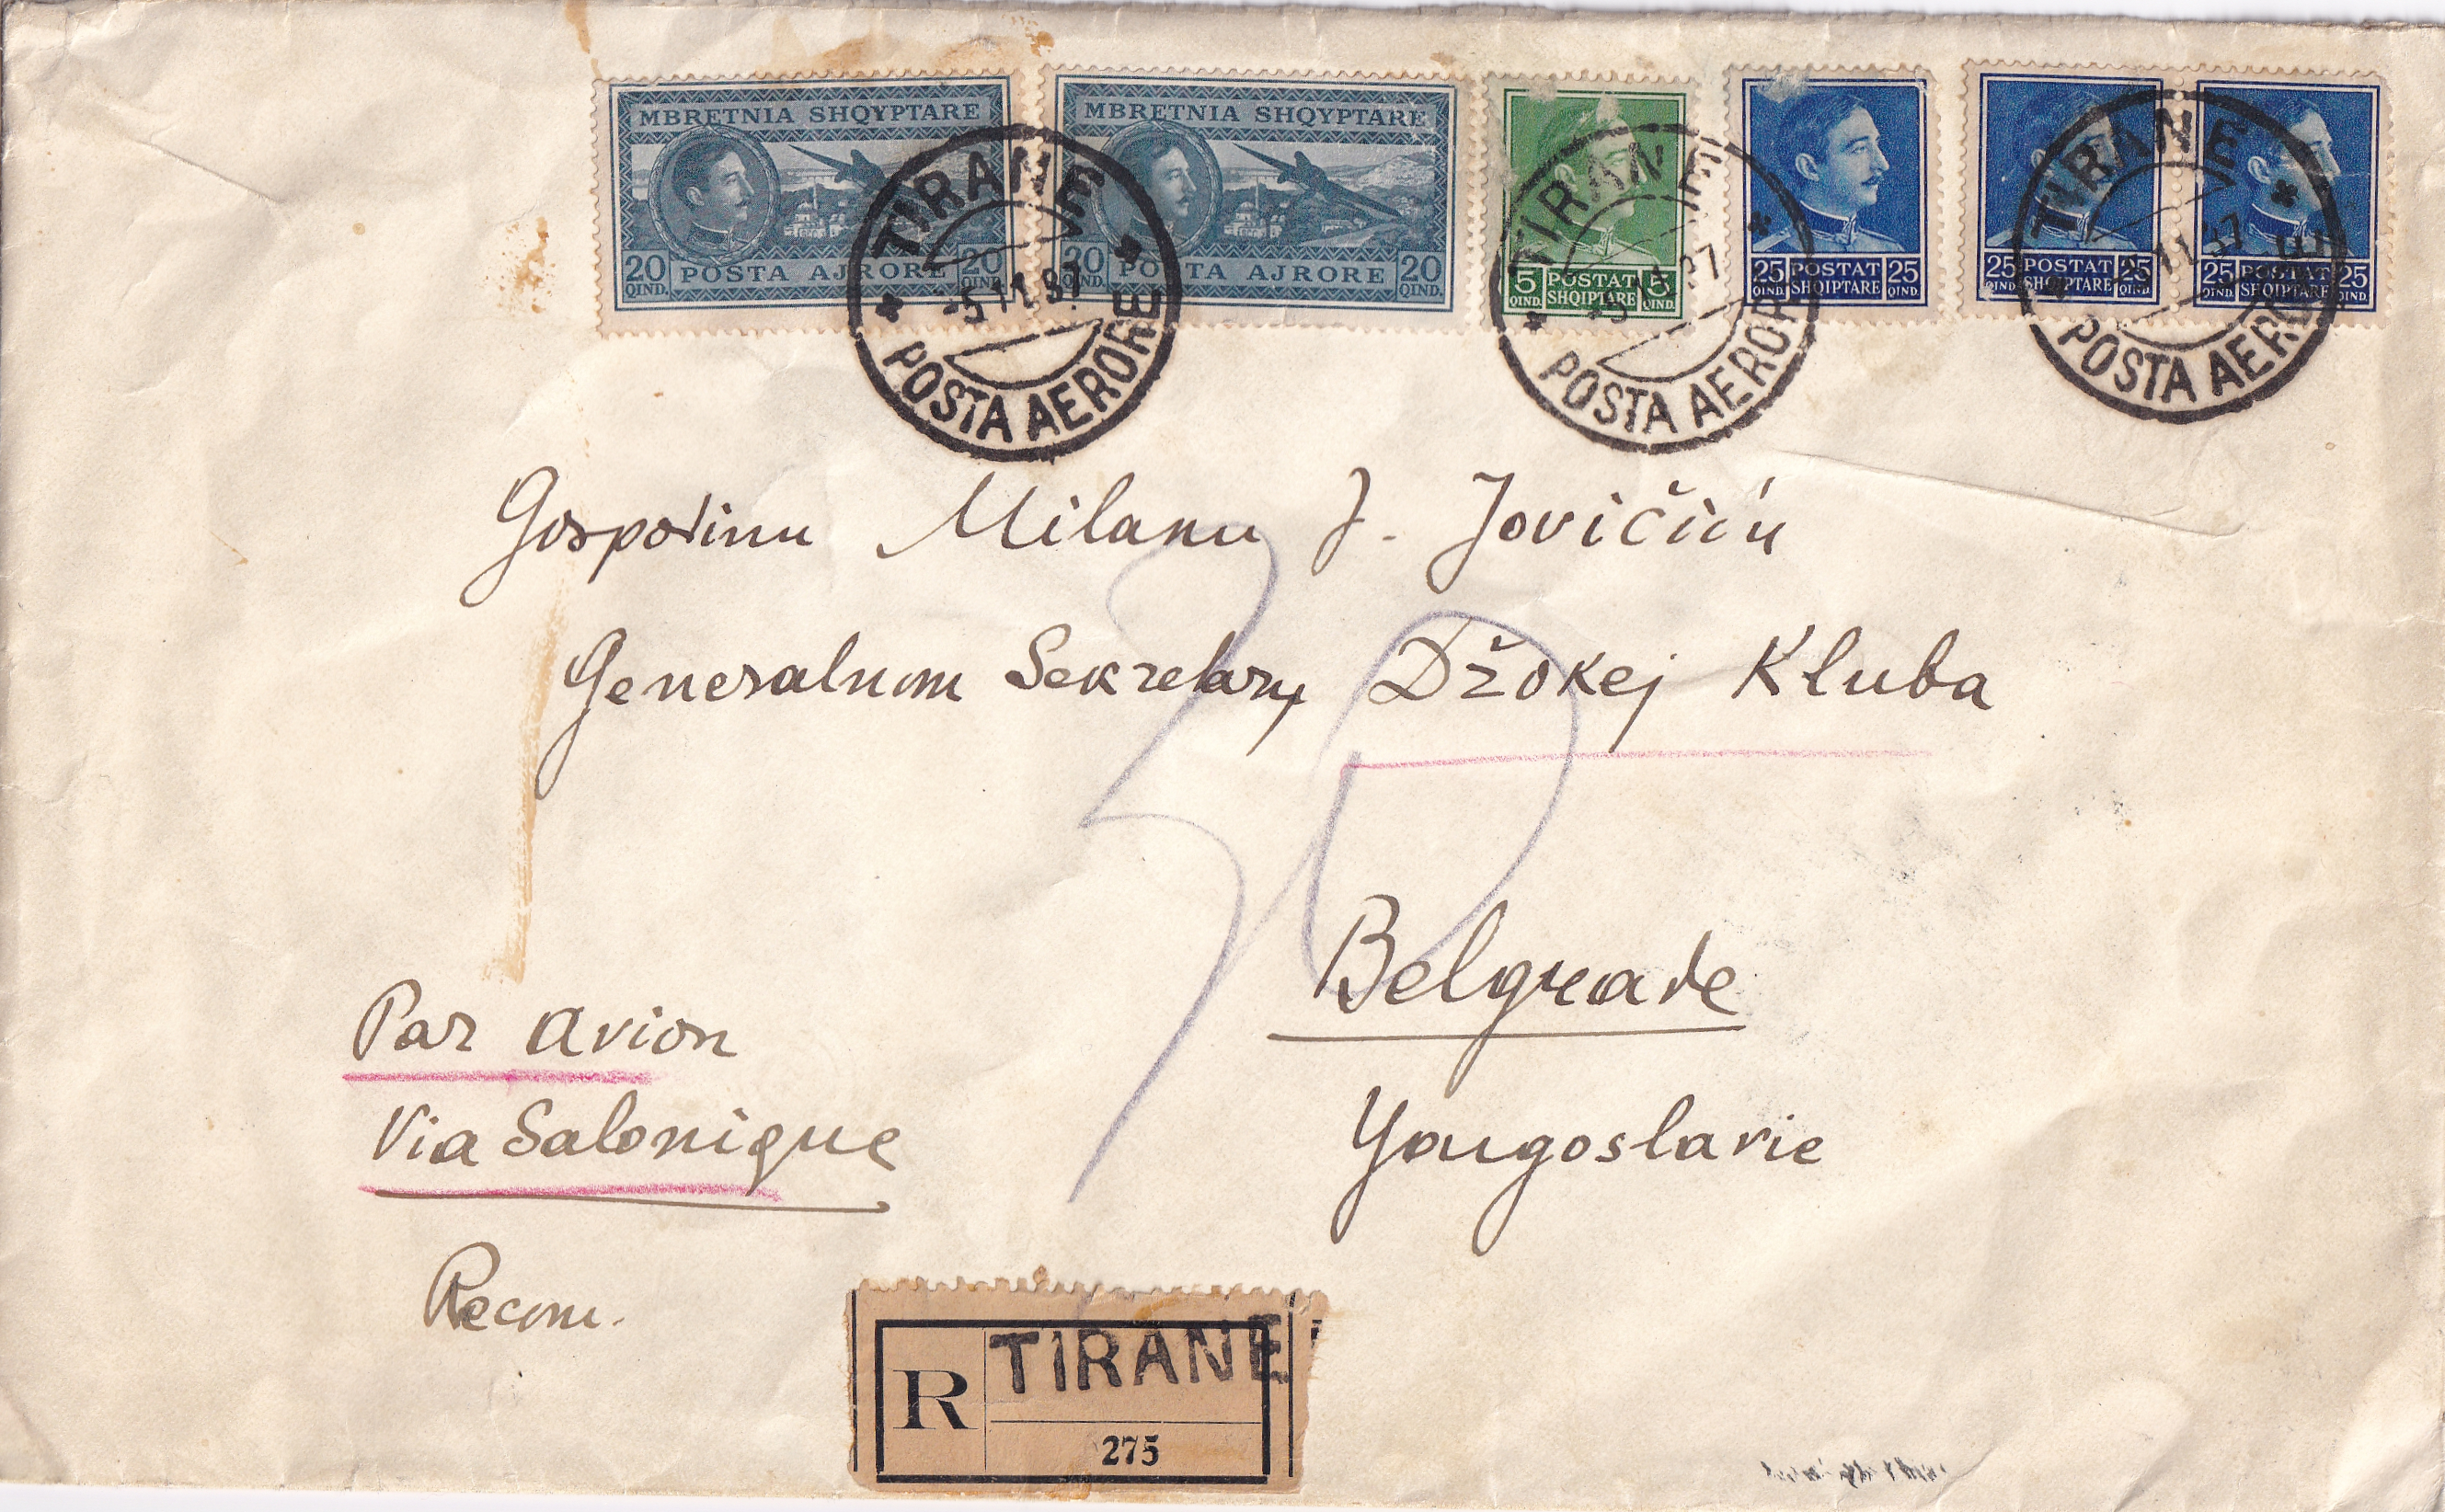 MBRETNIA SHQYPTARE
20 QIND. POSTA AJRORE 20 QIND.
MBRETNIA SHQYPTARE
20 QIND. POSTA AJRORE 20 QIND.
5 QIND. POSTAT SHQIPTARE 5 QIND.
25 QIND. POSTAT SHQIPTARE 25 QIND.
25 QIND. POSTAT SHQIPTARE 25 QIND.
25 QIND. POSTAT SHQIPTARE 25 QIND.
TIRANE
-5 11 37
POSTA AERORE
TIRANE
POSTA AERORE
TIRANE
11 37
POSTA AERORE
Gospodinu Milanu J. Jovičiću
Generalnom Sekretaru Džokej Kluba
30
Belgrade
Yougoslavie
Par avion
Via Salonique
Recom.
R TIRANE
275